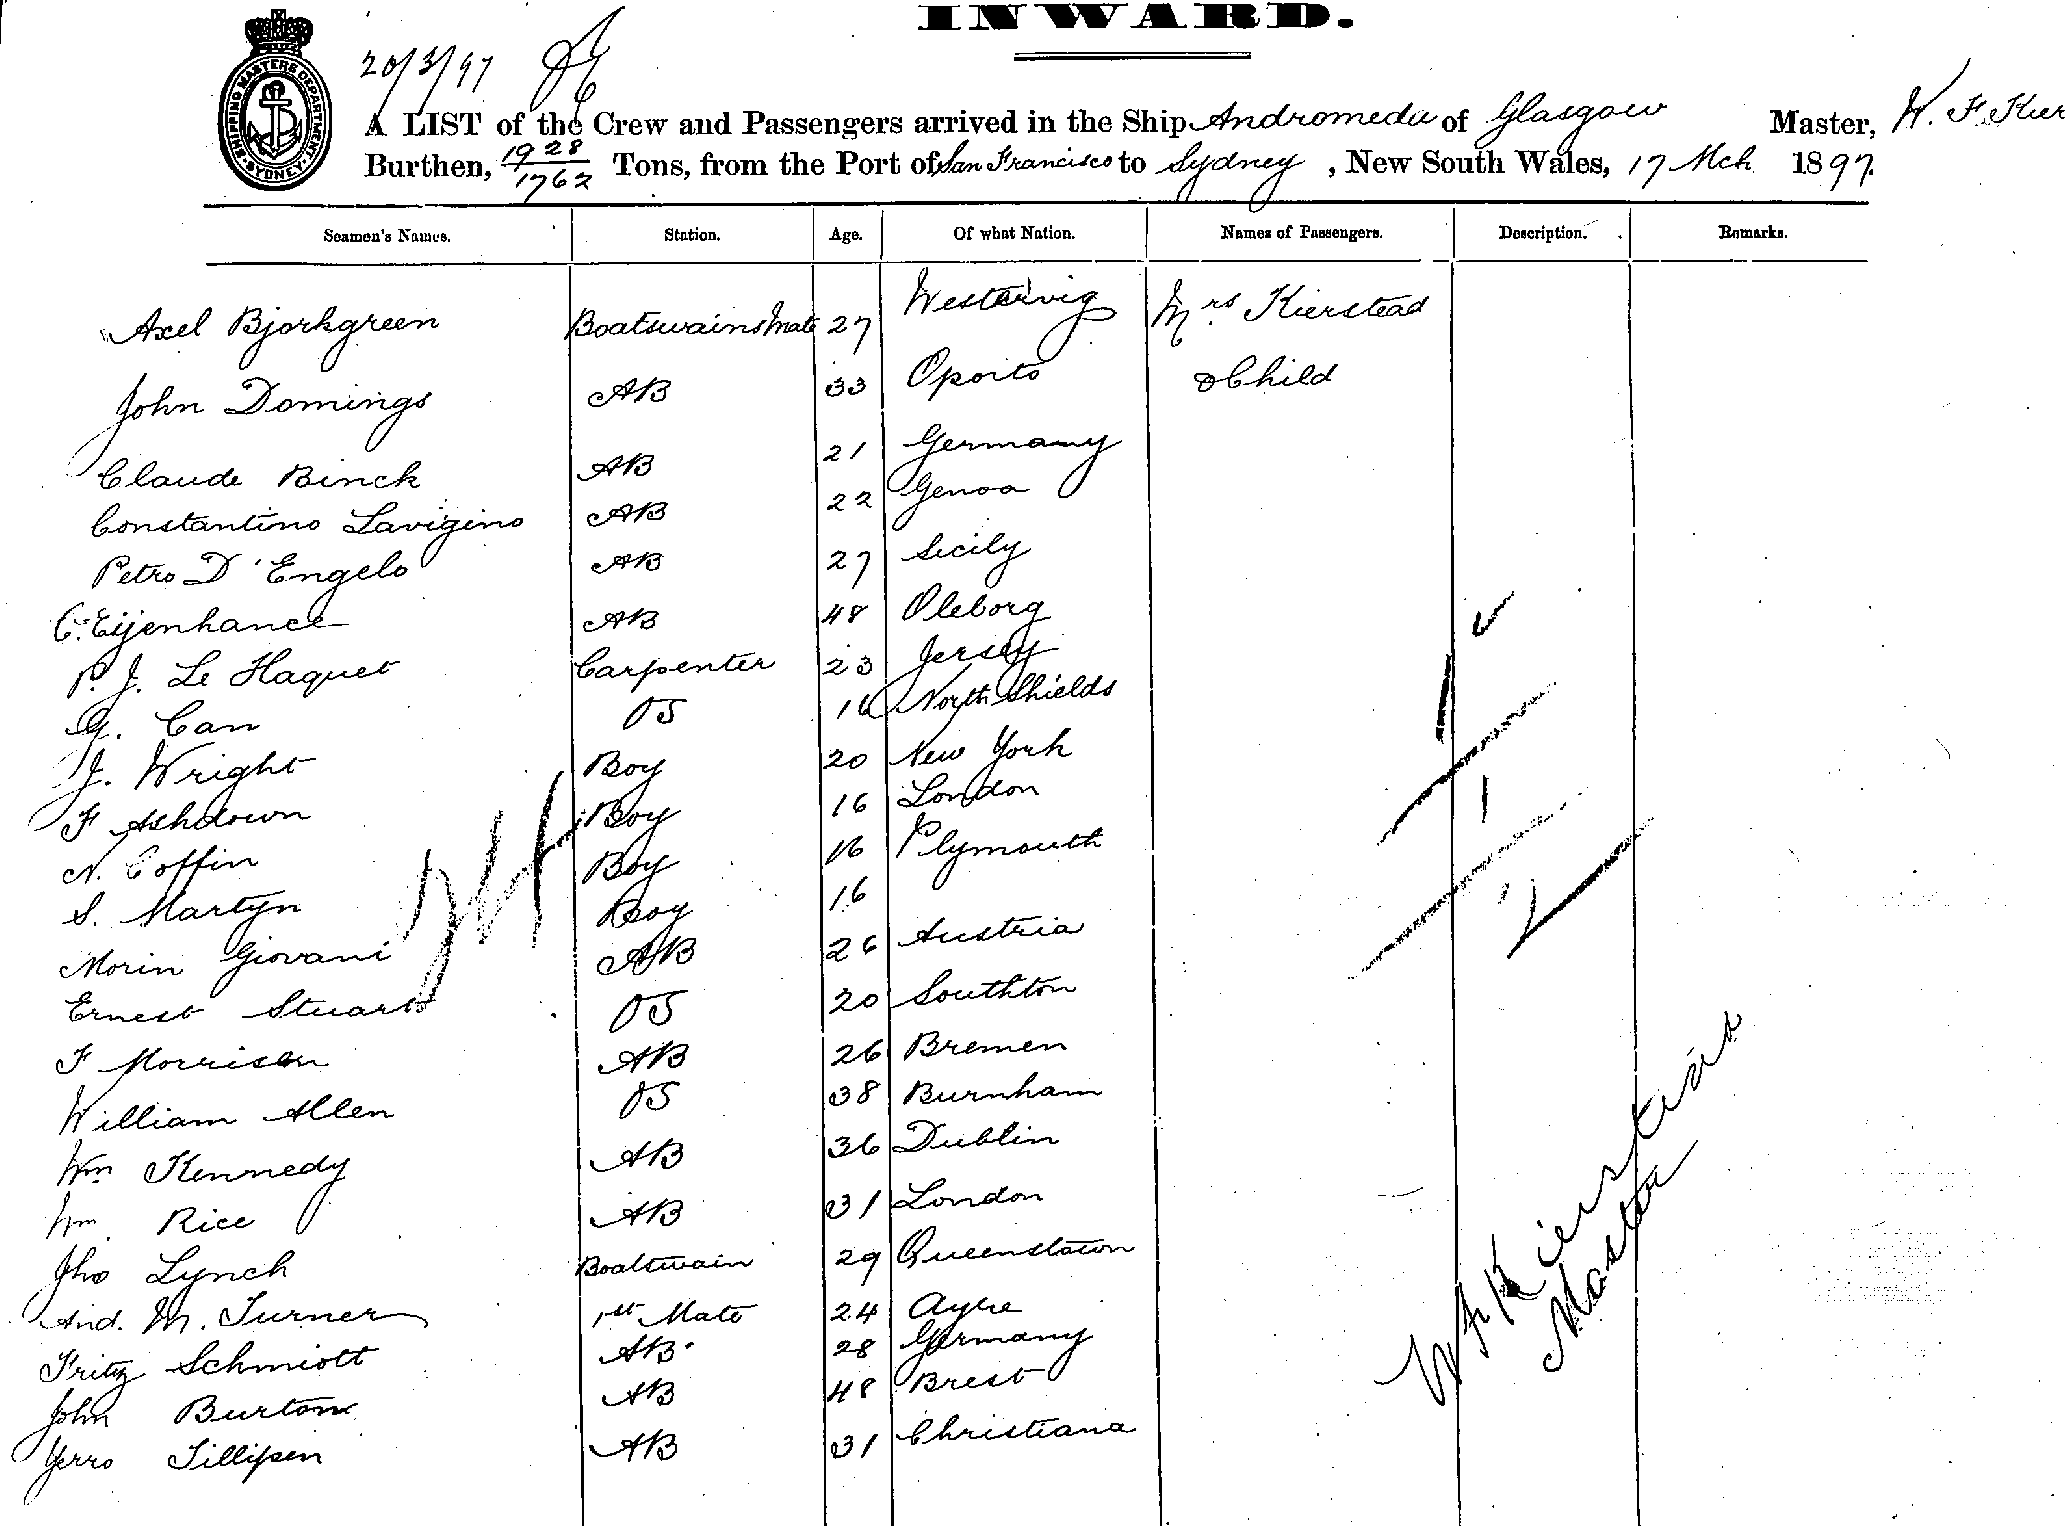 INWARD.
SHIPPING MASTERS DEPARTMENT SYDNEY
20/3/97
A LIST of the Crew and Passengers arrived in the Ship Andromeda of Glasgow Master, W. F. Kier
Burthen, 1928/1762 Tons, from the Port of San Francisco to Sydney, New South Wales, 17 Mch 1897.
Seamen's Names. Station. Age. Of what Nation. Names of Passengers. Description. Remarks.
Axel Bjorkgreen Boatswains Mate 27 Westervig Mrs Kierstead
John Domings AB 33 Oporto & Child
Claude Binck AB 21 Germany
Constantino Lavigino AB 22 Genoa
Petro D'Engelo AB 27 Sicily
C. Eijenhance AB 48 Oleborg
P. J. Le Haquet Carpenter 23 Jersey
G. Can OS 16 North Shields
J. Wright Boy 20 New York
F Ashdown Boy 16 London
N. Coffin Boy 16 Plymouth
S. Martyn Boy 16
Morin Giovani AB 26 Austria
Ernest Stuart OS 20 Southton
F Morrison AB 26 Bremen
William Allen OS 38 Burnham
Wm Kennedy AB 36 Dublin
Wm Rice AB 31 London
Jno Lynch Boatswain 29 Queenstown
And. M. Turner 1st Mate 24 Ayre
Fritz Schmiott AB 28 Germany
John Burton AB 48 Brest
Yerro Tillipen AB 31 Christiana
1
1
2
W F Kierstead
Master